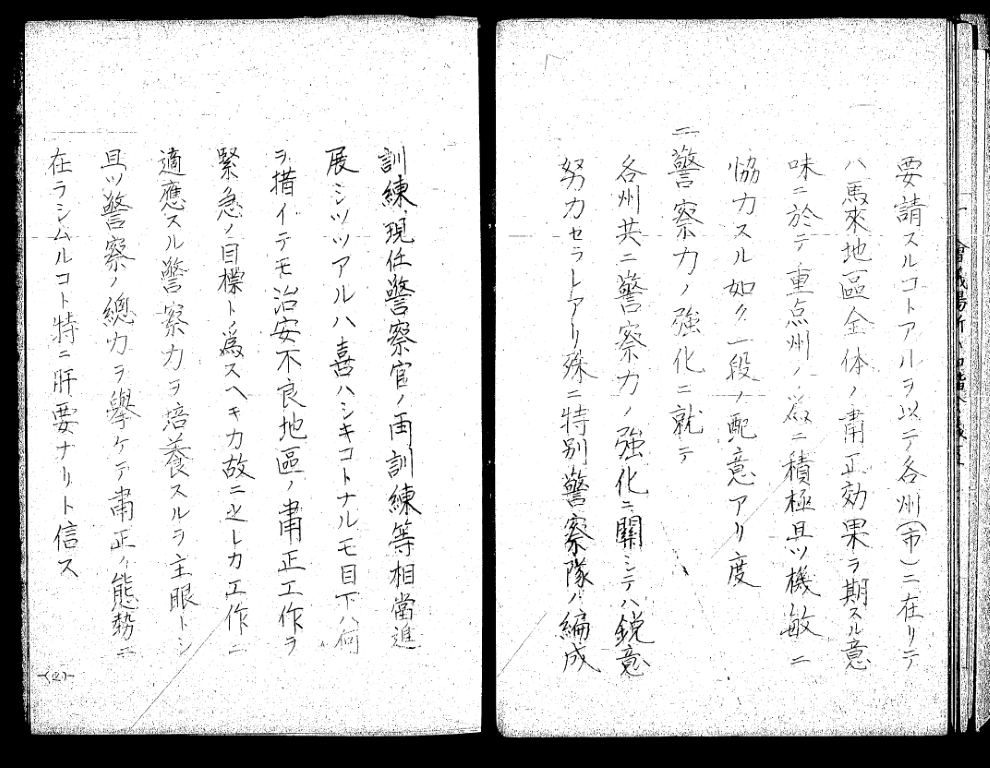 要請スルコトアルヲ以テ各州(市)ニ在リテ
ハ馬來地區全体ノ肅正効果ヲ期スル意
味ニ於テ重点州ノ為ニ積極且ツ機敏ニ
協力スル如ク一段ノ配意アリ度
二警察力ノ強化ニ就テ
各州共ニ警察力ノ強化ニ關シテハ鋭意
努力セラレアリ殊ニ特別警察隊ノ編成
訓練、現任警察官ノ再訓練等相當進
展シツツアルハ喜ハシキコトナルモ目下ハ何
ヲ措イテモ治安不良地區ノ肅正工作ヲ
緊急ノ目標ト爲スヘキカ故ニ之レカ工作ニ
適應スル警察力ヲ培養スルヲ主眼トシ
且ツ警察ノ總力ヲ擧ケテ肅正ノ態勢ニ
在ラシムルコト特ニ肝要ナリト信ス
(2)